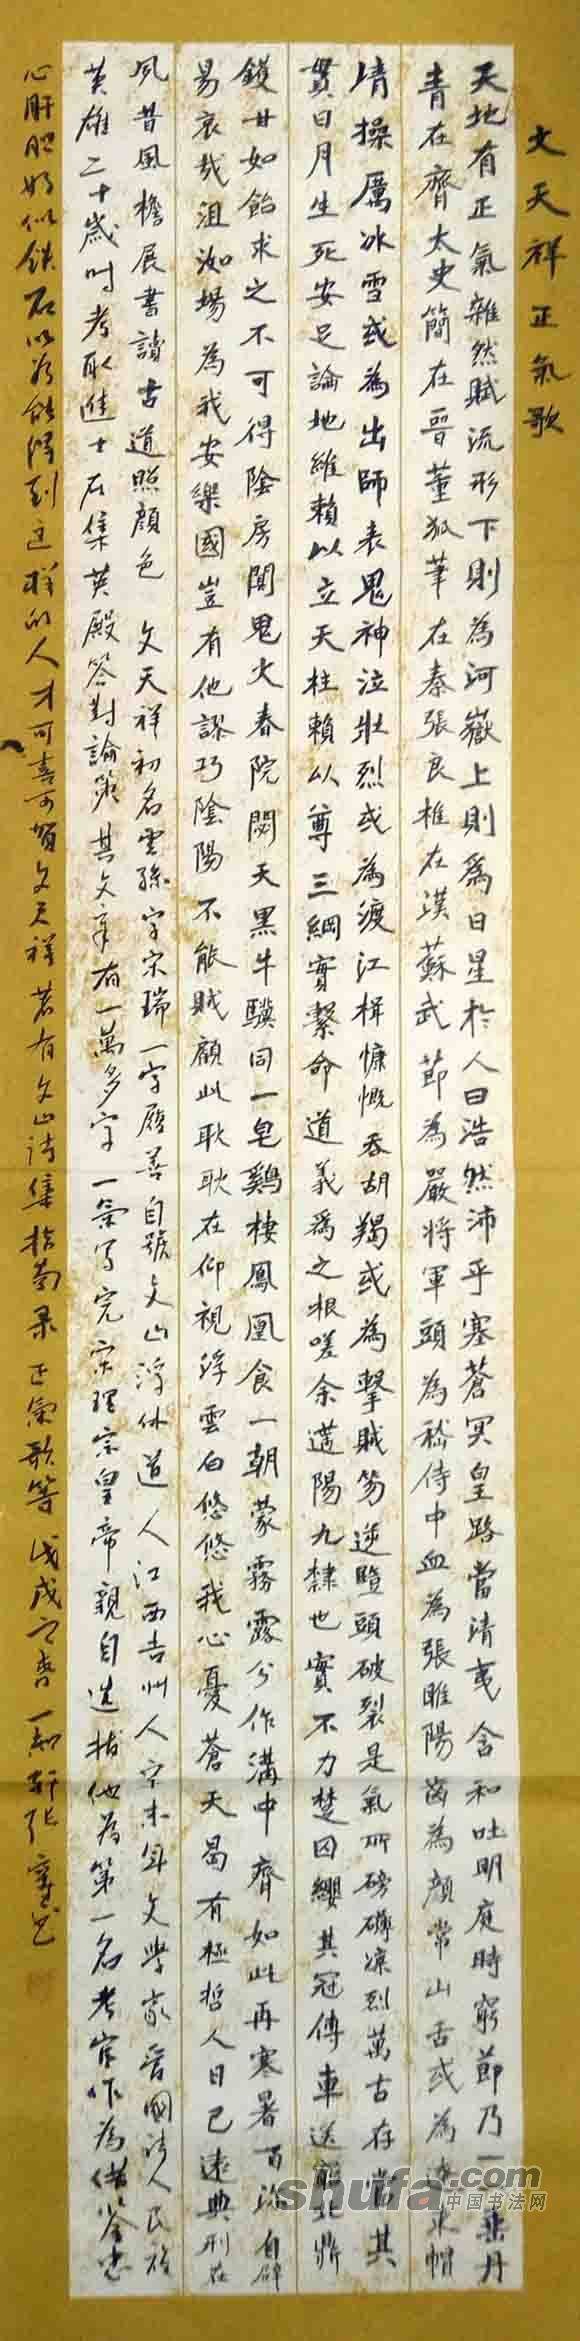 文天祥正氣歌
天地有正氣雜然賦流形下則為河嶽上則為日星於人曰浩然沛乎塞蒼冥皇路當清夷含和吐明庭時窮節乃一垂丹
青在齊太史簡在晉董狐筆在秦張良椎在漢蘇武節為嚴將軍頭為嵇侍中血為張睢陽齒為顏常山舌或為遼東帽
清操厲冰雪或為出師表鬼神泣壯烈或為渡江楫慷慨吞胡羯或為擊賊笏逆豎頭破裂是氣所磅礴凜烈萬古存當其
貫日月生死安足論地維賴以立天柱賴以尊三綱實繫命道義為之根嗟余遘陽九隸也實不力楚囚纓其冠傳車送窮北鼎
鑊甘如飴求之不可得陰房闃鬼火春院閟天黑牛驥同一皂鷄棲鳳凰食一朝蒙霧露分作溝中瘠如此再寒暑百沴自辟
易哀哉沮洳場為我安樂國豈有他謬巧陰陽不能賊顧此耿耿在仰視浮雲白悠悠我心憂蒼天曷有極哲人日已遠典刑在
夙昔風檐展書讀古道照顏色 文天祥初名雲孫字宋瑞一字履善自號文山浮休道人江西吉州人宋末年文學家晉國詩人民族
英雄二十歲时考取進士在集英殿答對論策其文章有一萬多字一氣写完宋理宗皇帝親自选拔他為第一名考官作為借鉴忠
心肝胆好似鉄石以为能得到这样的人才可喜可賀文天祥著有文山诗集指南录正氣歌等 戊戌之春
shufa.com
中国书法网